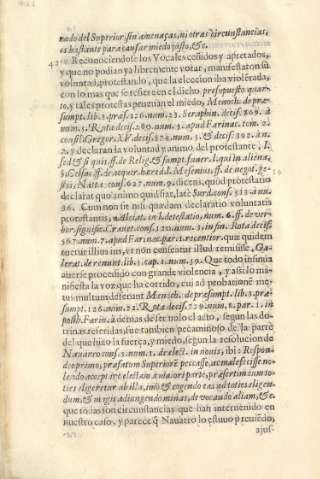 rado del Superior sin amenaças, ni otras circunstancias,
es bastante para causar miedo justo, &c.
42 Reconociendose los Vocales ceñidos y apretados,
y que no podian ya libremente votar, manifestaron su
voluntad, protestando, que la eleccion iba violētada,
con lo mas que se refiere en el dicho presupuesto quar-
to, y tales protestas prueuan el miedo, Menoch. de præ-
sumpt. lib. 3. præs. 126. num. 23. Seraphin. decis. 269. à
num. 5. Rota decis. 289. num. 3. apud Farinac. tom. 2.
consil. Gregor. XV. decis. 324. num. 3. & decis. 392. àn.
2. y declaran la voluntad y animo del protestante, l.
sed & si quis, ff. de Relig. & sumpt. funer. l. qui in aliena,
3. Celsus, ff. de acquir. hæred. l. Nesenius, ff. de negot. ge-
stis; Natta cons. 627. num. 9. dicens, quòd protestatio
declarat quo animo quid fiat, latè Surd. cons. 313. à n.
36. Cum non sit nisi quædam declaratio voluntatis
protestantis, Alciat. in l. detestatio, num. 6. ff. de ver-
bor. signific. Crauet. cons. 120. num. 3. in fin. Rota decis.
367. num. 7. apud Farinac. par. 1. recentior. qua quidem
tuetur illius ius, er non censeatur illud remisisse, Ga-
leras. de renunt. lib. 1. cap. 1. num. 59. Que todo insinua
auerse procedido con grande violencia, y assi lo ma-
nifiesta la voz que ha corrido, cui ad probationē me-
tus multùm defertur Menoch. de præsumpt. lib. 3. præ-
sumpt. 126. num. 22. Rota decis. 729. num. 2. par. 1. in
posth. Farin. à demas de ser nulo el acto, segun las do-
trinas referidas, fue tambien pecaminoso de la parte
del que hizo la fuerça, y miedo, segun la resolucion de
Nauarro cons. 3. num. 1. de elect. in nouis, ibi: Respon-
deo primo, præfatum Superiorē peccasse, ac male fecisse no-
lendo accipere electam à maiori parte, præsertim cum to-
ties eligeretur ab illa, imò & cogendo eas ad toties eligen-
dum, & magis adiungendo minas, de vocando aliam, &c.
que todas son circunstancias que han interuenido en
nuestro caso, y parece q̃ Nauarro lo estuuo preuiēdo,
ajus-